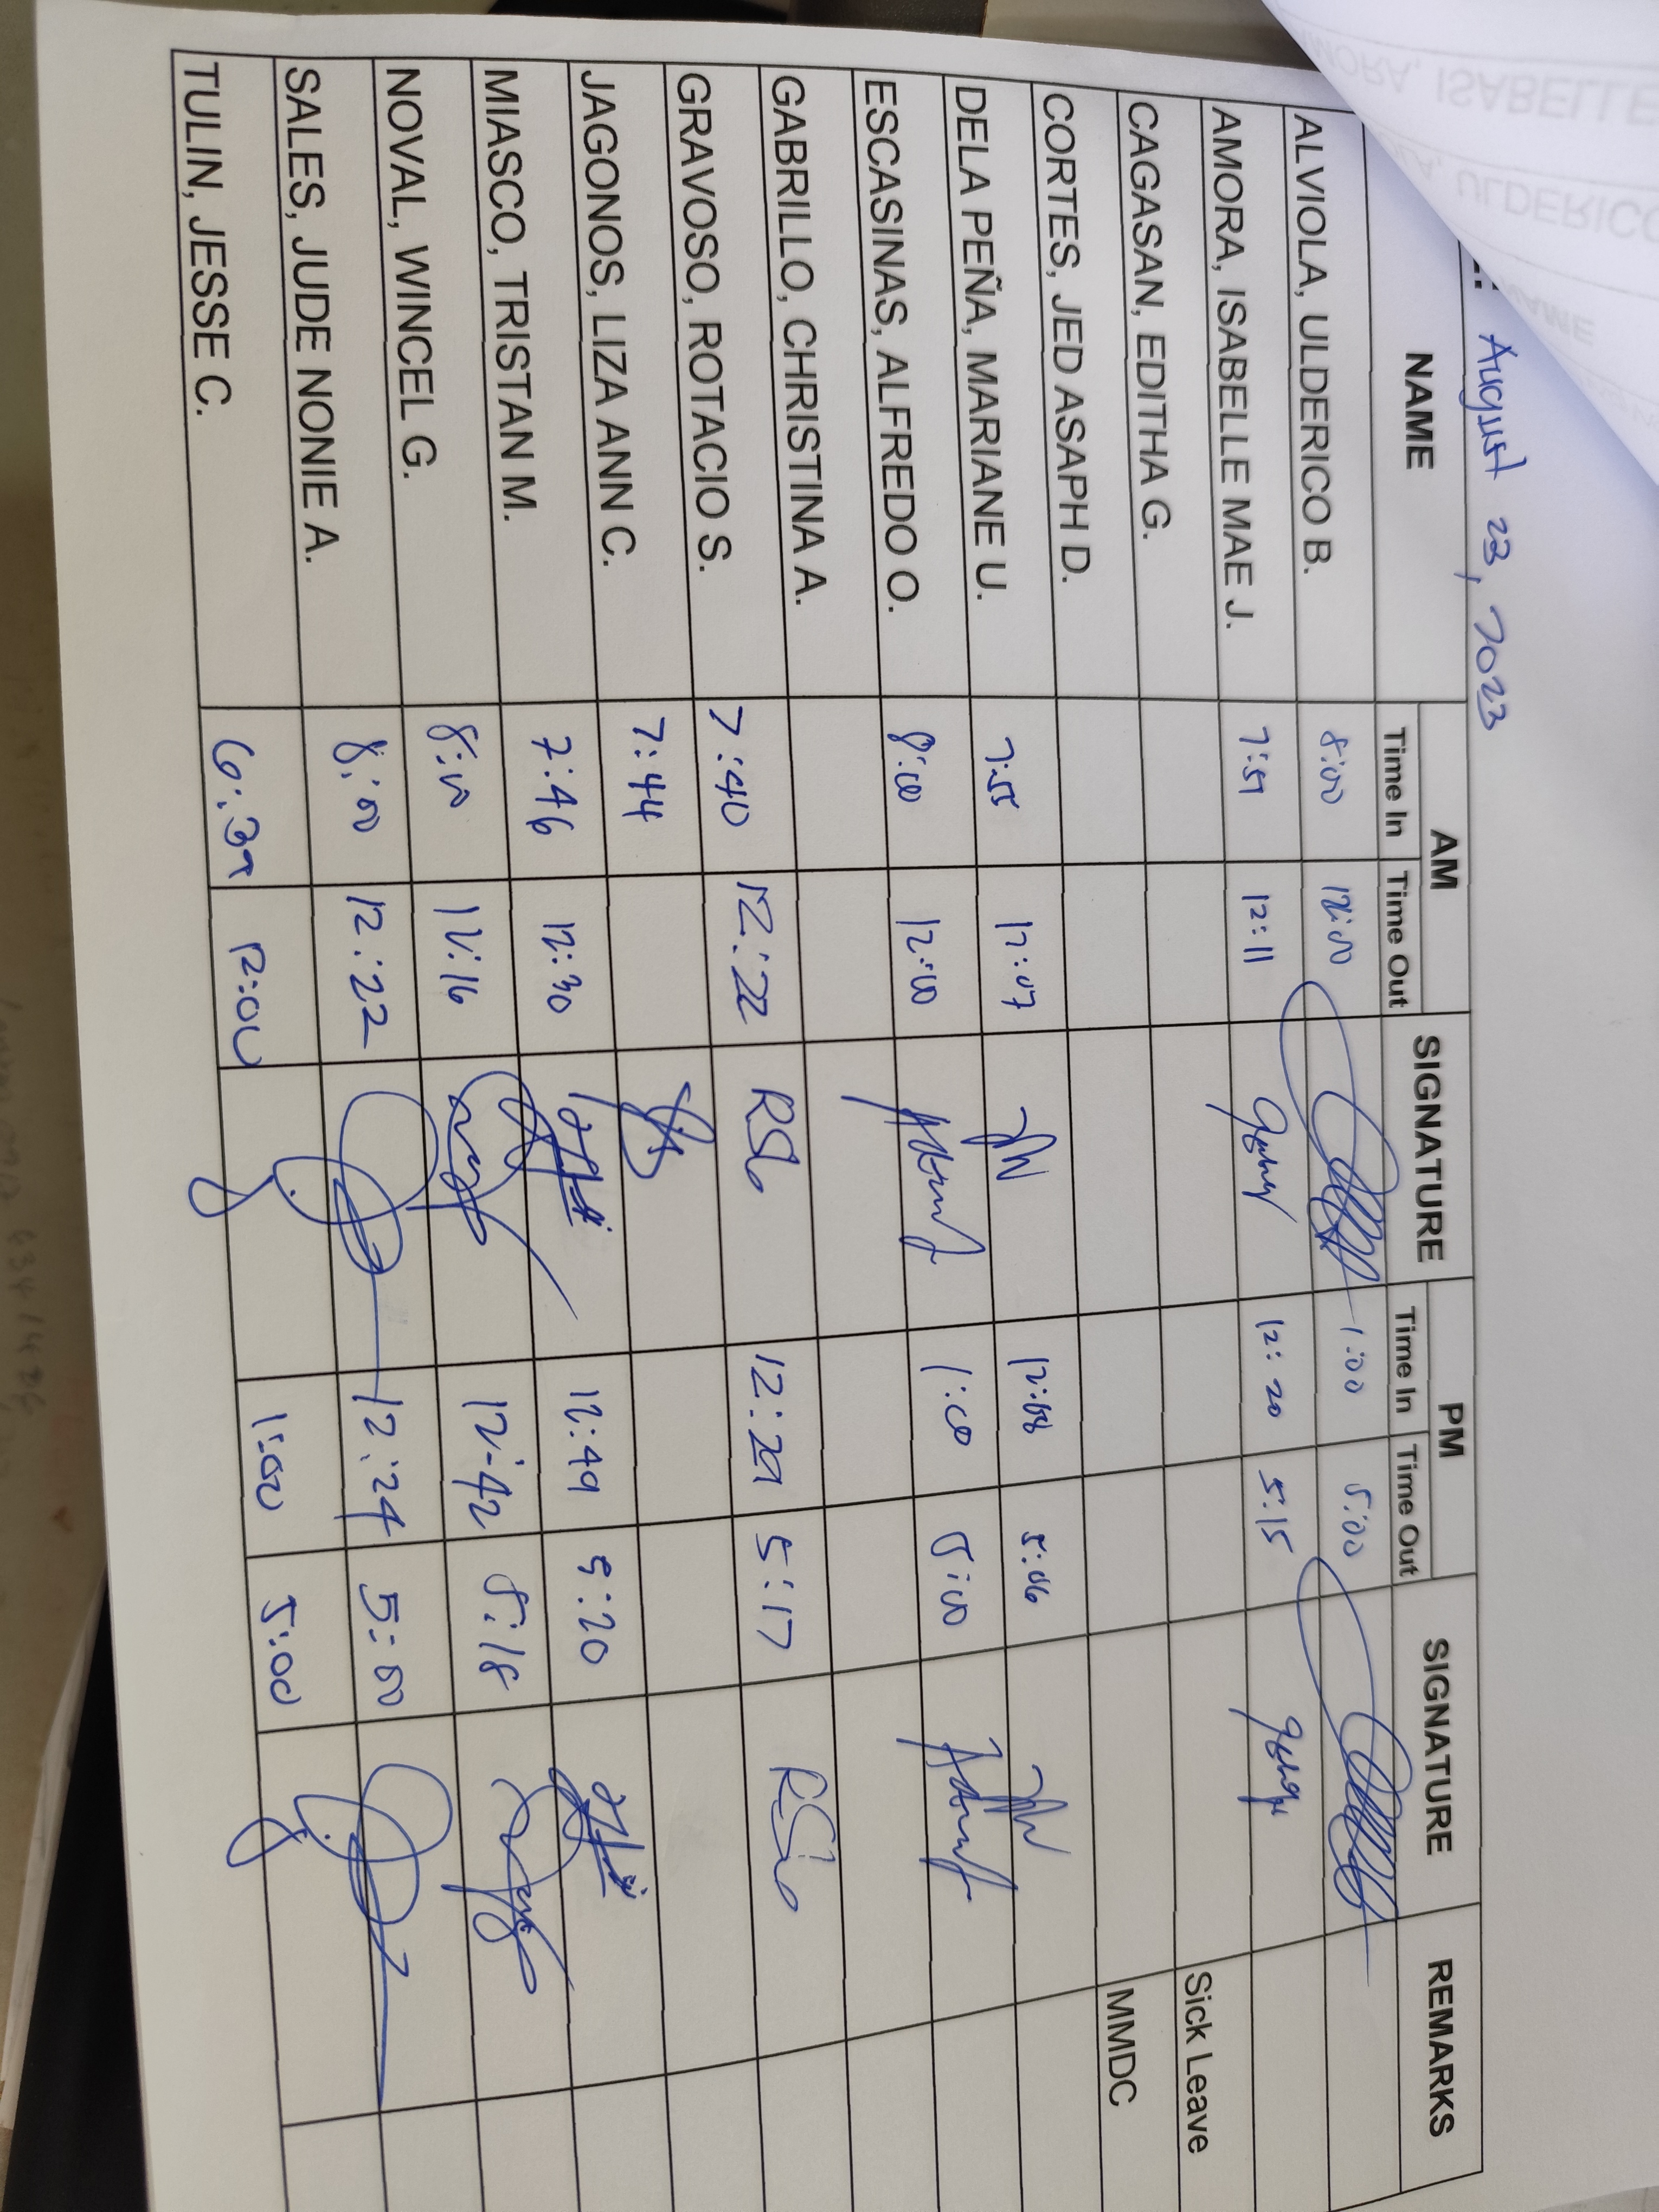 : August 23, 2023
NAME AM SIGNATURE PM SIGNATURE REMARKS
Time In Time Out Time In Time Out
ALVIOLA, ULDERICO B. 8:00 12:00 1:00 5:00
AMORA, ISABELLE MAE J. 12:11 12:20 5:15
CAGASAN, EDITHA G. Sick Leave
CORTES, JED ASAPH D. MMDC
DELA PEÑA, MARIANE U. 7:55 12:07 12:08 5:06
ESCASINAS, ALFREDO O. 8:00 12:00 1:00 5:00
GABRILLO, CHRISTINA A.
GRAVOSO, ROTACIO S. 7:40 12:22 12:29 5:17
JAGONOS, LIZA ANN C. 7:44
MIASCO, TRISTAN M. 7:46 12:30 12:49 5:20
NOVAL, WINCEL G. 8:00 12:16 12:42 5:18
SALES, JUDE NONIE A. 8:00 12:22 12:24 5:00
TULIN, JESSE C. 6:39 12:00 1:00 5:00